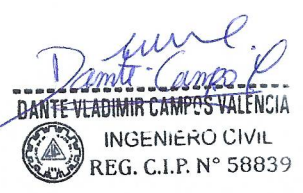 Dante Campos V
DANTE VLADIMIR CAMPOS VALENCIA
INGENIERO CIVIL
REG. C.I.P. N° 58839